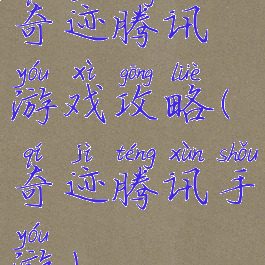 奇迹腾讯
yóu xì gōng lüè
游戏攻略(
qí jì téng xùn shǒu
奇迹腾讯手
yóu
游)